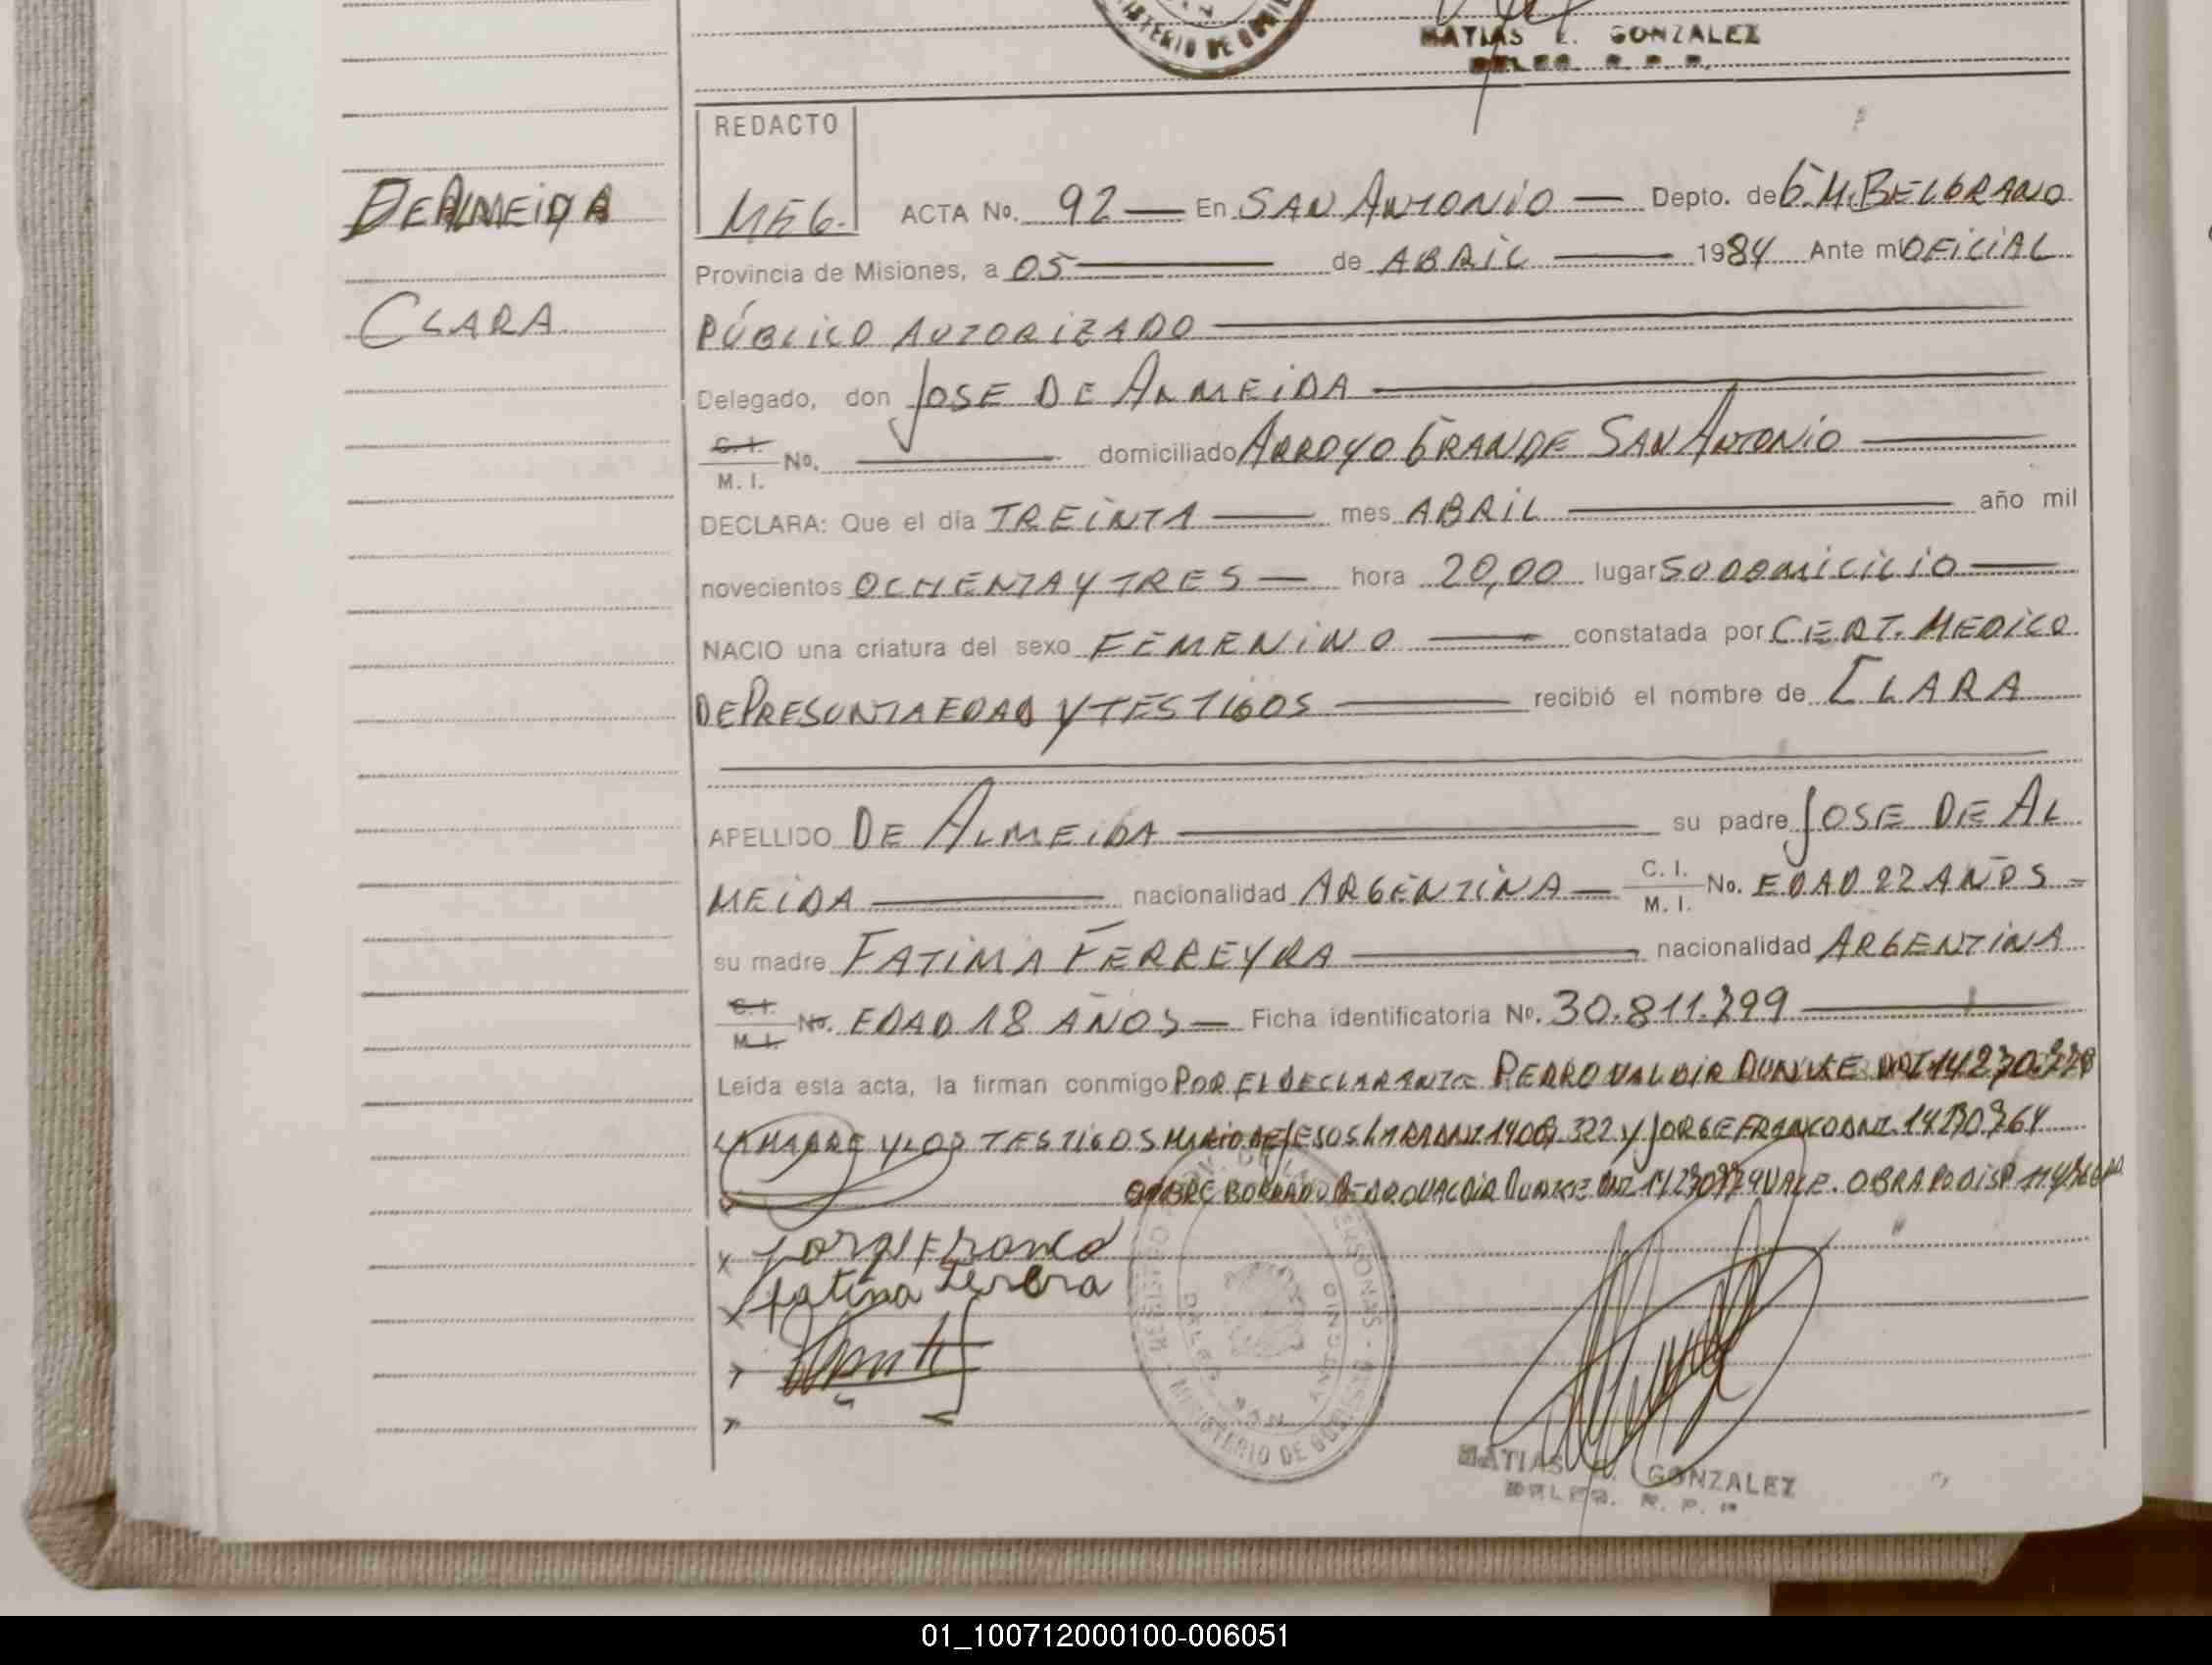 MINISTERIO DE GOBIERNO
MATIAS E. GONZALEZ
DELEG. R. P. P.
REDACTO
MEG.
DE ALMEIDA
CLARA
ACTA No. 92 — En SAN ANTONIO — Depto. de G.M. BELGRANO
Provincia de Misiones, a 05 — de ABRIL — 1984 Ante mí OFICIAL
PÚBLICO AUTORIZADO —
Delegado, don JOSE DE ALMEIDA —
C. I. / M. I. No. — domiciliado ARROYO GRANDE SAN ANTONIO —
DECLARA: Que el día TREINTA — mes ABRIL — año mil
novecientos OCHENTA Y TRES — hora 20,00 lugar SU DOMICILIO —
NACIO una criatura del sexo FEMENINO — constatada por CERT. MEDICO
DE PRESUNTA EDAD Y TESTIGOS — recibió el nombre de CLARA
APELLIDO DE ALMEIDA — su padre JOSE DE AL
MEIDA — nacionalidad ARGENTINA — C. I. / M. I. No. EDAD 22 AÑOS —
su madre FATIMA FERREYRA — nacionalidad ARGENTINA
C. I. / M. I. No. EDAD 18 AÑOS — Ficha identificatoria No. 30.811.799 —
Leída esta acta, la firman conmigo POR EL DECLARANTE PEDRO VALDIR
LA MADRE Y LOS TESTIGOS MARIO DE JESUS Y JORGE FRANCO DNI
SOBRE BORRADO PEDRO VALDIR VALE.
Jorge Franco
fatima
REGISTRO PROV. DE LAS PERSONAS - MINISTERIO DE GOBIERNO
DELEG. SAN ANTONIO
MATIAS E. GONZALEZ
DELEG. R. P. P.
01_100712000100-006051